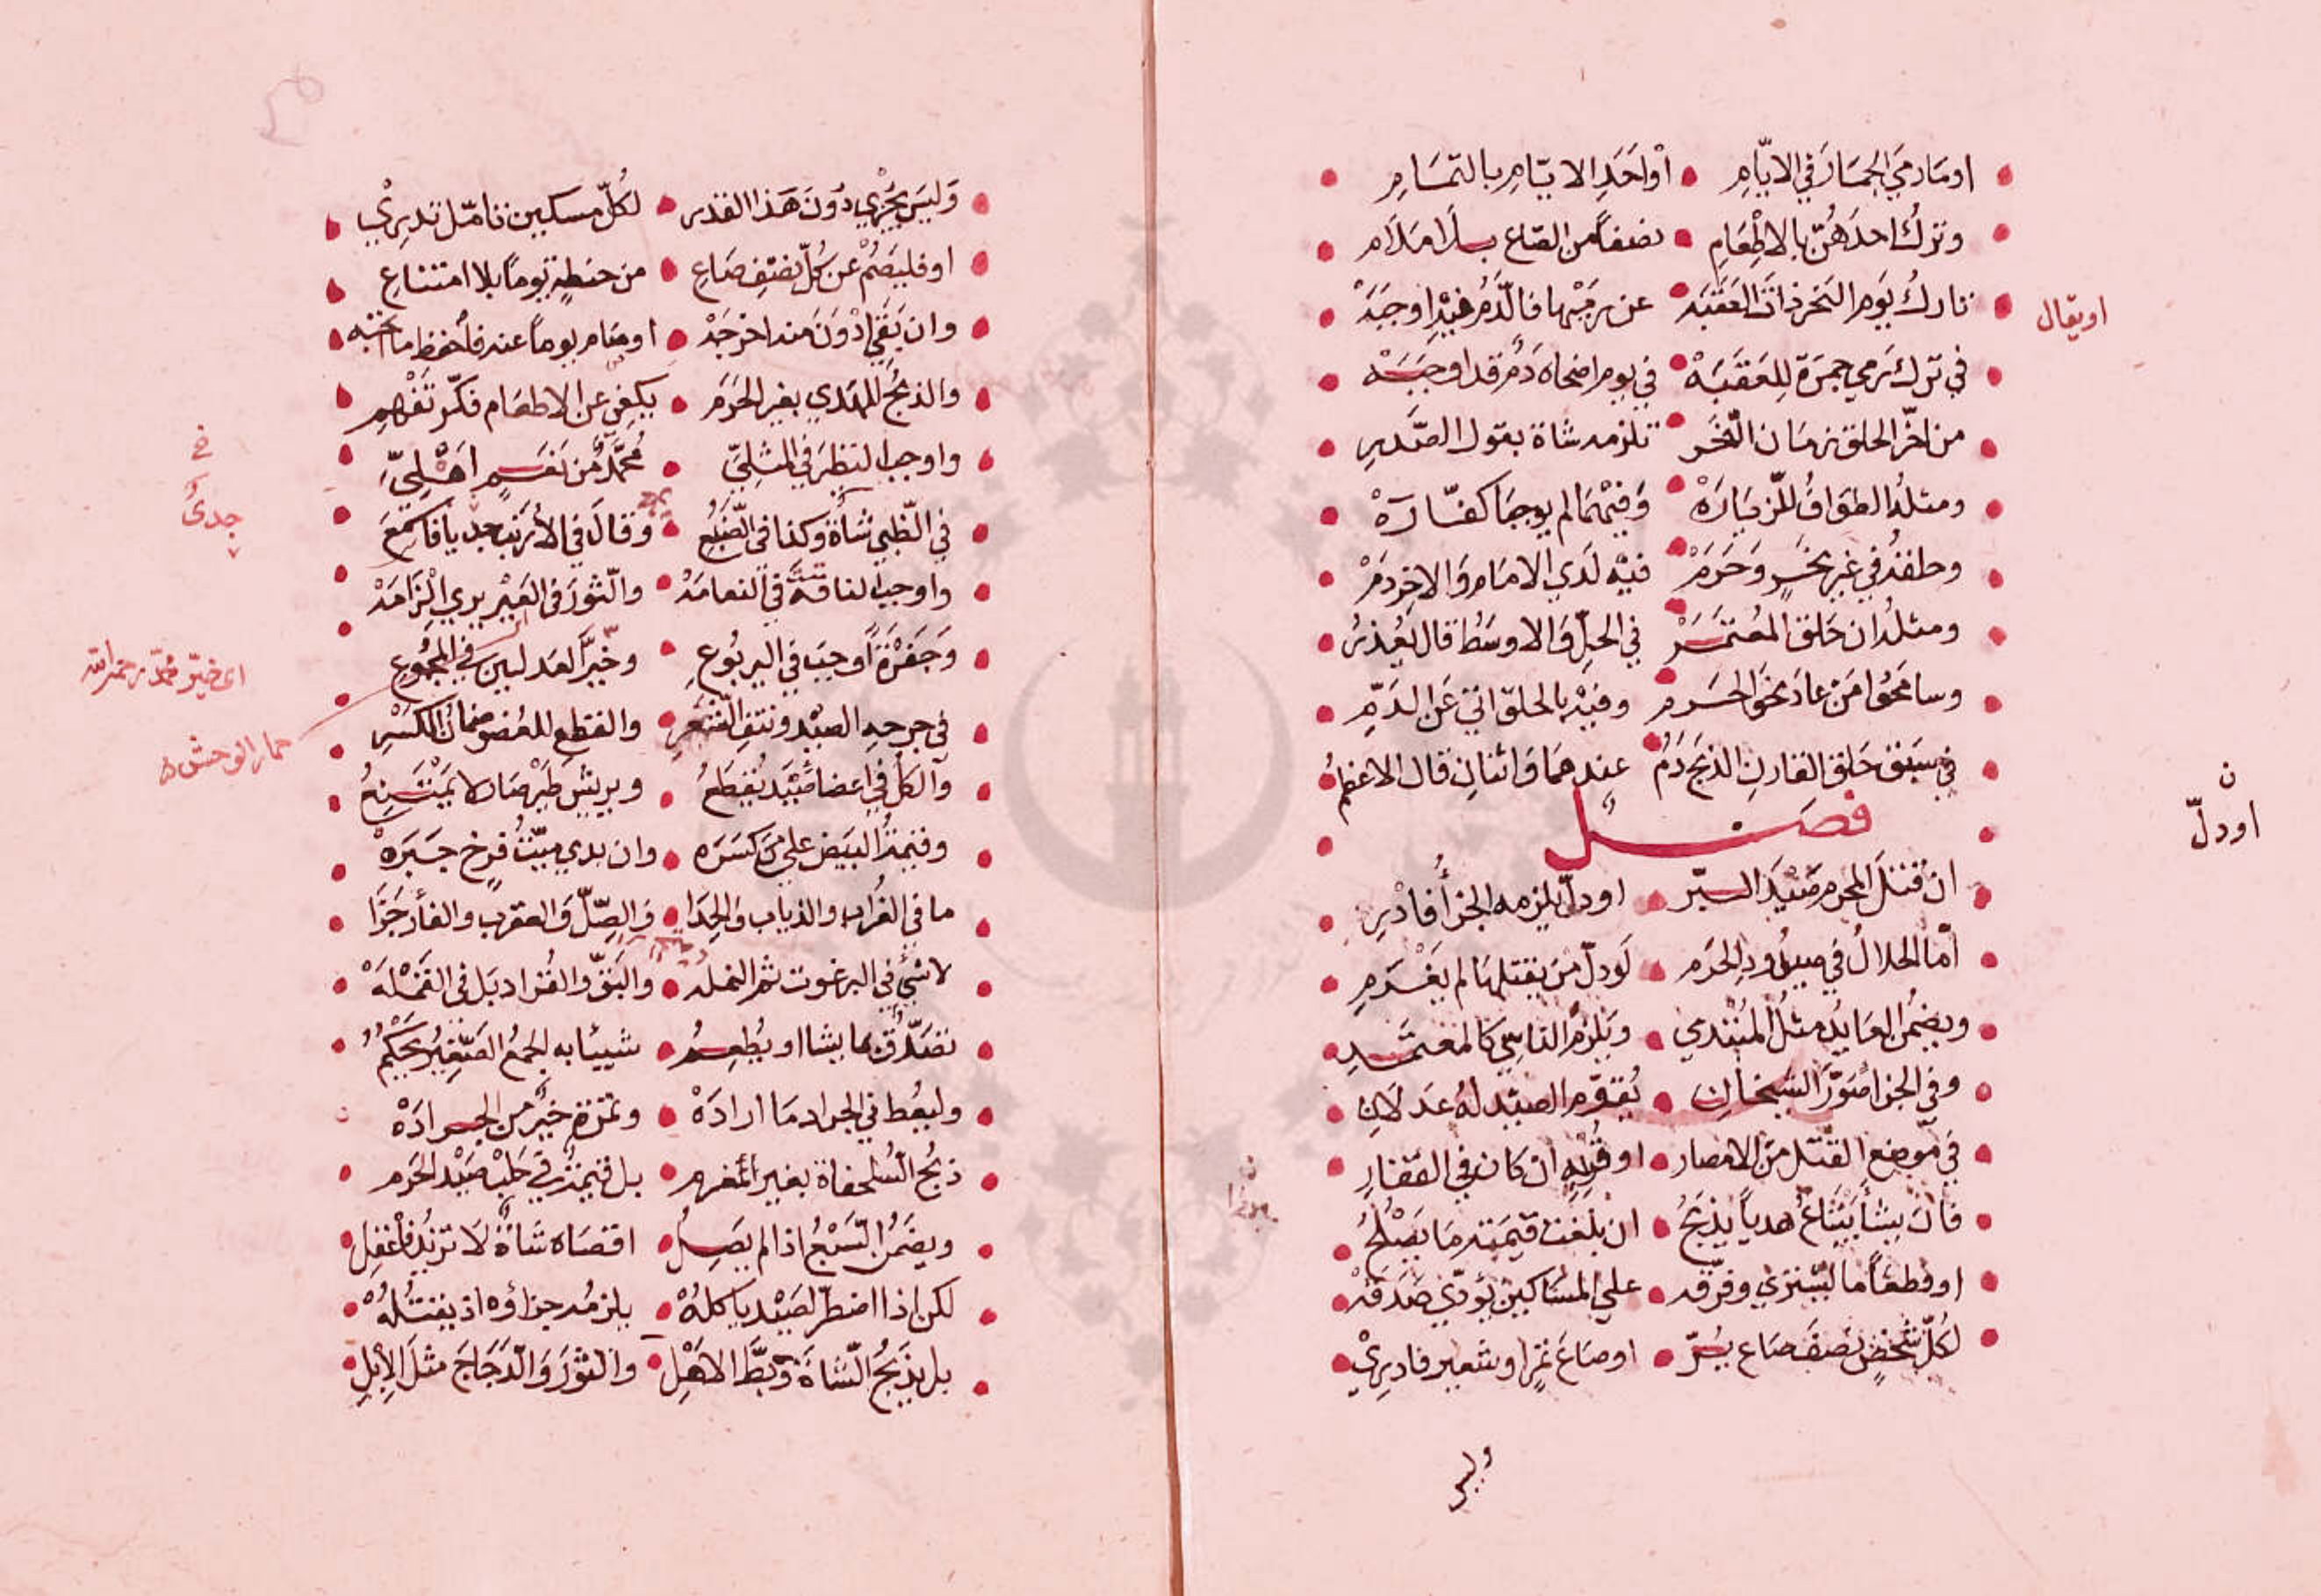 اومَارمَي الجمَارَ في الايّامِ • أوْ احَدِ الايّامِ بالتمَامِ
وترك احدَهُنّ بالاِطْعَامِ • نصفاً من الصّاع بلا مَلَام
تارك يَومِ النحر ذات العَقَبَه • عن رَميْها فالدّمُ فيْهِ اوجَبَهْ
اويقال
في ترك رَمي جمرَة لِلعَقَبَهْ • في يوم اضحاه دَمٌ قد اوجَبَهْ
من اخّر الحلق زمَان النّحَر • تلزمه شاة بقول الصّدرِ
ومثلهُ الطوَافُ للزّيَارَهْ • وَفيْهمَا لم يوجبَا كفّارَهْ
وحلقهُ في غير نحْرٍ وَحَرَمْ • فيْه لَدي الامَامِ وَالاخِرِ دَمْ
ومثلهُ ان حَلقَ المعُتمَرْ • في الحِلِّ وَالاوسَطُ قال يُعْذرُ
وسامَحُوا مَن عادَ نحوَ الحَرم • وفيْه بالحلق اتى عَن الدَمِّ
في سَبْق حَلق القارن الذبحَ دَمُ • عندهمَا وَاثنانِ قال الاعظمُ
فصَل
ان قتلَ المحرم صَيْدَ البرّ • اودلّ يلزمه الجزأُ فادْرِ
ن
اودلّ
أمّا الحلالُ في صيُودِ الحَرَم • لَودلّ مَن يقتلهَا لم يَغْرَمِ
ويضمَنُ العَايدُ مثلُ المُبْتدي • وَيَلزمُ الناسِي كالمعتمّدِ
وفي الجزا صَوّرَ الشيخانِ • يُقوّم الصيْد لهُ عَدلَانِ
في مَوضع القتل مَن الامصار • اوقُربِهِ ان كان في القفارِ
فان يشأ يَبْتاعُ هدياً يذبحُ • ان بلغت قيمَته مَا يصْلحُ
اوفطعَاماً ليشتري وفرّقه • علي المسَاكين يؤدّي صَدَقَهْ
لكُلّ شخْصٍ نصْفَ صَاع بُرّ • اوصَاعَ تمْرٍ اوشعير فادرِيْ
وليس
وَليسَ يَجْزِي دُونَ هَذا القدر • لكُلّ مسكين تامّل تدرِيْ
اوفليصُمْ عن كُلّ نصْفِ صَاعِ • من حنطةٍ يَوماً بلا امتناعِ
وان يَبْقَى دُوْنَ مَنه اخرجَهْ • اوصَام يوماً عنه فاحفظ
والذبحُ للهَدي بغير الحَرَم • يكفي عن الاطعَام فكّر تَفْهَمِ
واوجب النظيرَ في المثليّ • مُحَمّدٌ من نَعَمٍ اهْليّ
في الظّبي شاةٌ وكذا في الضّبُعِ • وَقالَ في الأرنب جدياً فاسمَعَ
في
جديُ
واوجب الناقةَ في النعامَهْ • والثّوْرَ في العَيْر يري الزَامَهْ
حمار الوحش
وَجَفْرَةً اَوجَبَ في اليربُوعِ • وخيّرَ العَدلين في المجْموعِ
اي خيّر محمّد رحمه الله
في جرحِهِ الصيْد ونتفِ الشّعَرِ • والقطع للعُضو ضمانُ الكسْرِ
وَالكلّ في اعضا صَيْدَ يُقطَعُ • وبريش طيْر صَار لا يمْتَنِعُ
وقيمَةُ البَيَض علي مَن كسَرَه • وان بدي ميّتُ فرخ جَبَرَهْ
ما في الغُراب والذياب وَالحِدَا • وَالصِّلّ وَالعقرب والفأر جَزَا
لا شيْ في البرغوث ثم النملَه • والبَقّ والقُراد بَل في القَمْلَهْ
تصَدّقٌ بما يشا او يُطعِمُ • شيئا به الجمعُ الصّغيرُ يَحْكُمُ
وليعُط في الجراد مَا ارادَهْ • وتمْرَة خيرٌ من الجرَادَهْ
ذبحُ السُلحفاة بغير المغرمِ • بل قيمَةُ في حَلب صَيْد الحَرم
ويضمَنُ السَبْعُ اذا لم يَصِلُ • اقصَاه شاةٌ لَا تزيْدُ فاعْقِل
لكن اذا اضطرّ لصَيْد ياكلهْ • يلزمُه جزاؤه اذ يقتلُهْ
بل يذبَحُ الشاةَ وَبَطَّ الاهْلِ • والثوْرَ وَالدّجَاجَ مثلَ الاِبْلِ